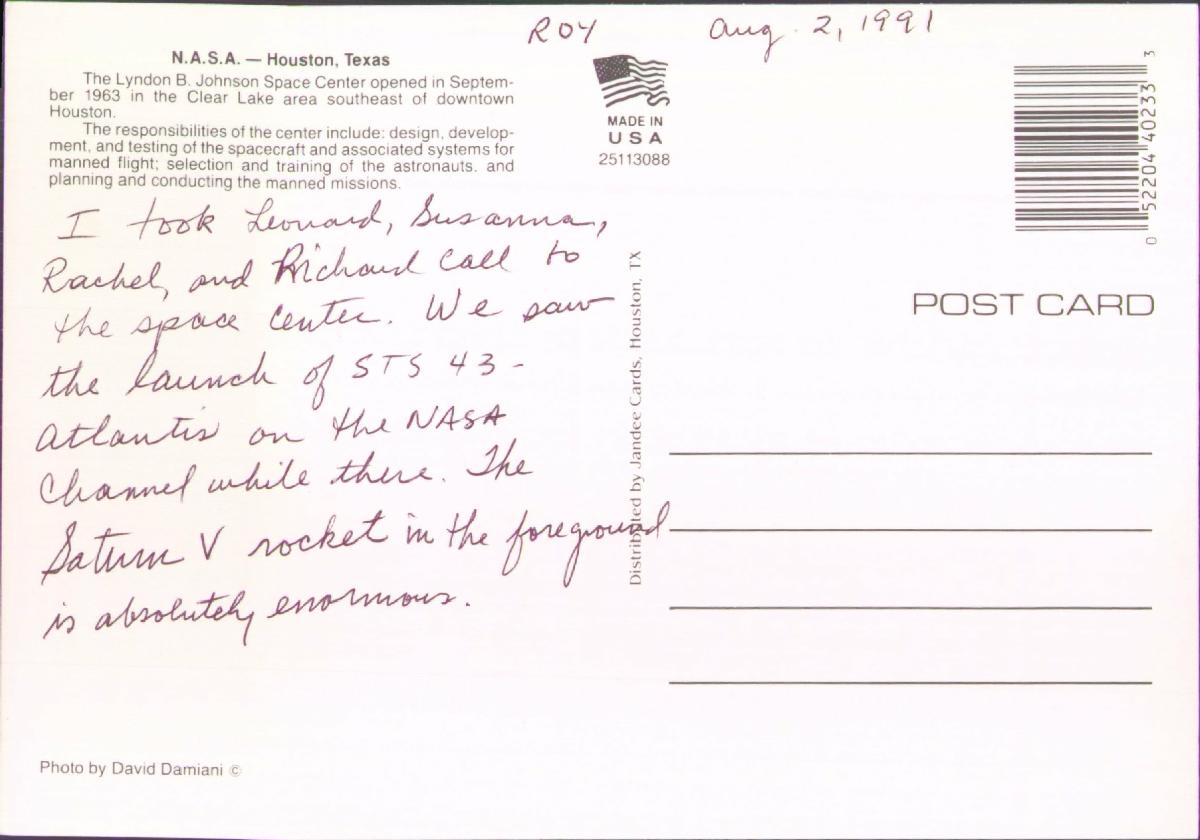 ROY Aug. 2, 1991
N.A.S.A. — Houston, Texas
The Lyndon B. Johnson Space Center opened in Septem-
ber 1963 in the Clear Lake area southeast of downtown
Houston.
The responsibilities of the center include: design, develop-
ment, and testing of the spacecraft and associated systems for
manned flight; selection and training of the astronauts. and
planning and conducting the manned missions.
I took Leonard, Susanna,
Rachel, and Richard Call to
the space center. We saw
the launch of STS 43 -
Atlantis on the NASA
Channel while there. The
Saturn V rocket in the foreground
is absolutely enormous.
Photo by David Damiani ©
MADE IN
USA
25113088
Distributed by Jandee Cards, Houston, TX
0 52204 40233 3
POST CARD